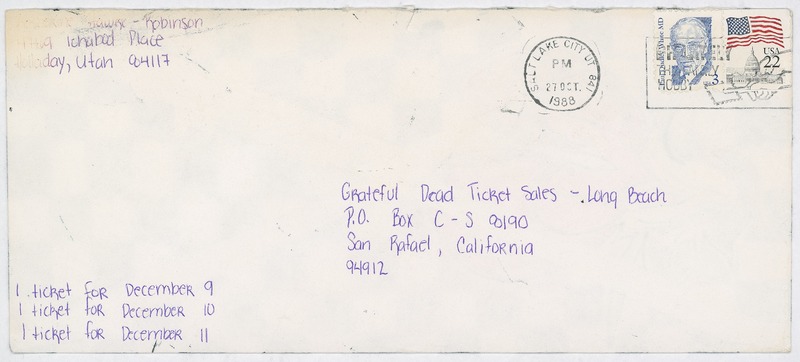 Robinson
Ichabod Place
Holladay, Utah 84117
SALT LAKE CITY UT 841
PM
27 OCT.
1988
Paul Dudley White MD
3
USA
22
HOBBY
Grateful Dead Ticket Sales - Long Beach
P.O. Box C-S 8190
San Rafael, California
94912
1 ticket for December 9
1 ticket for December 10
1 ticket for December 11